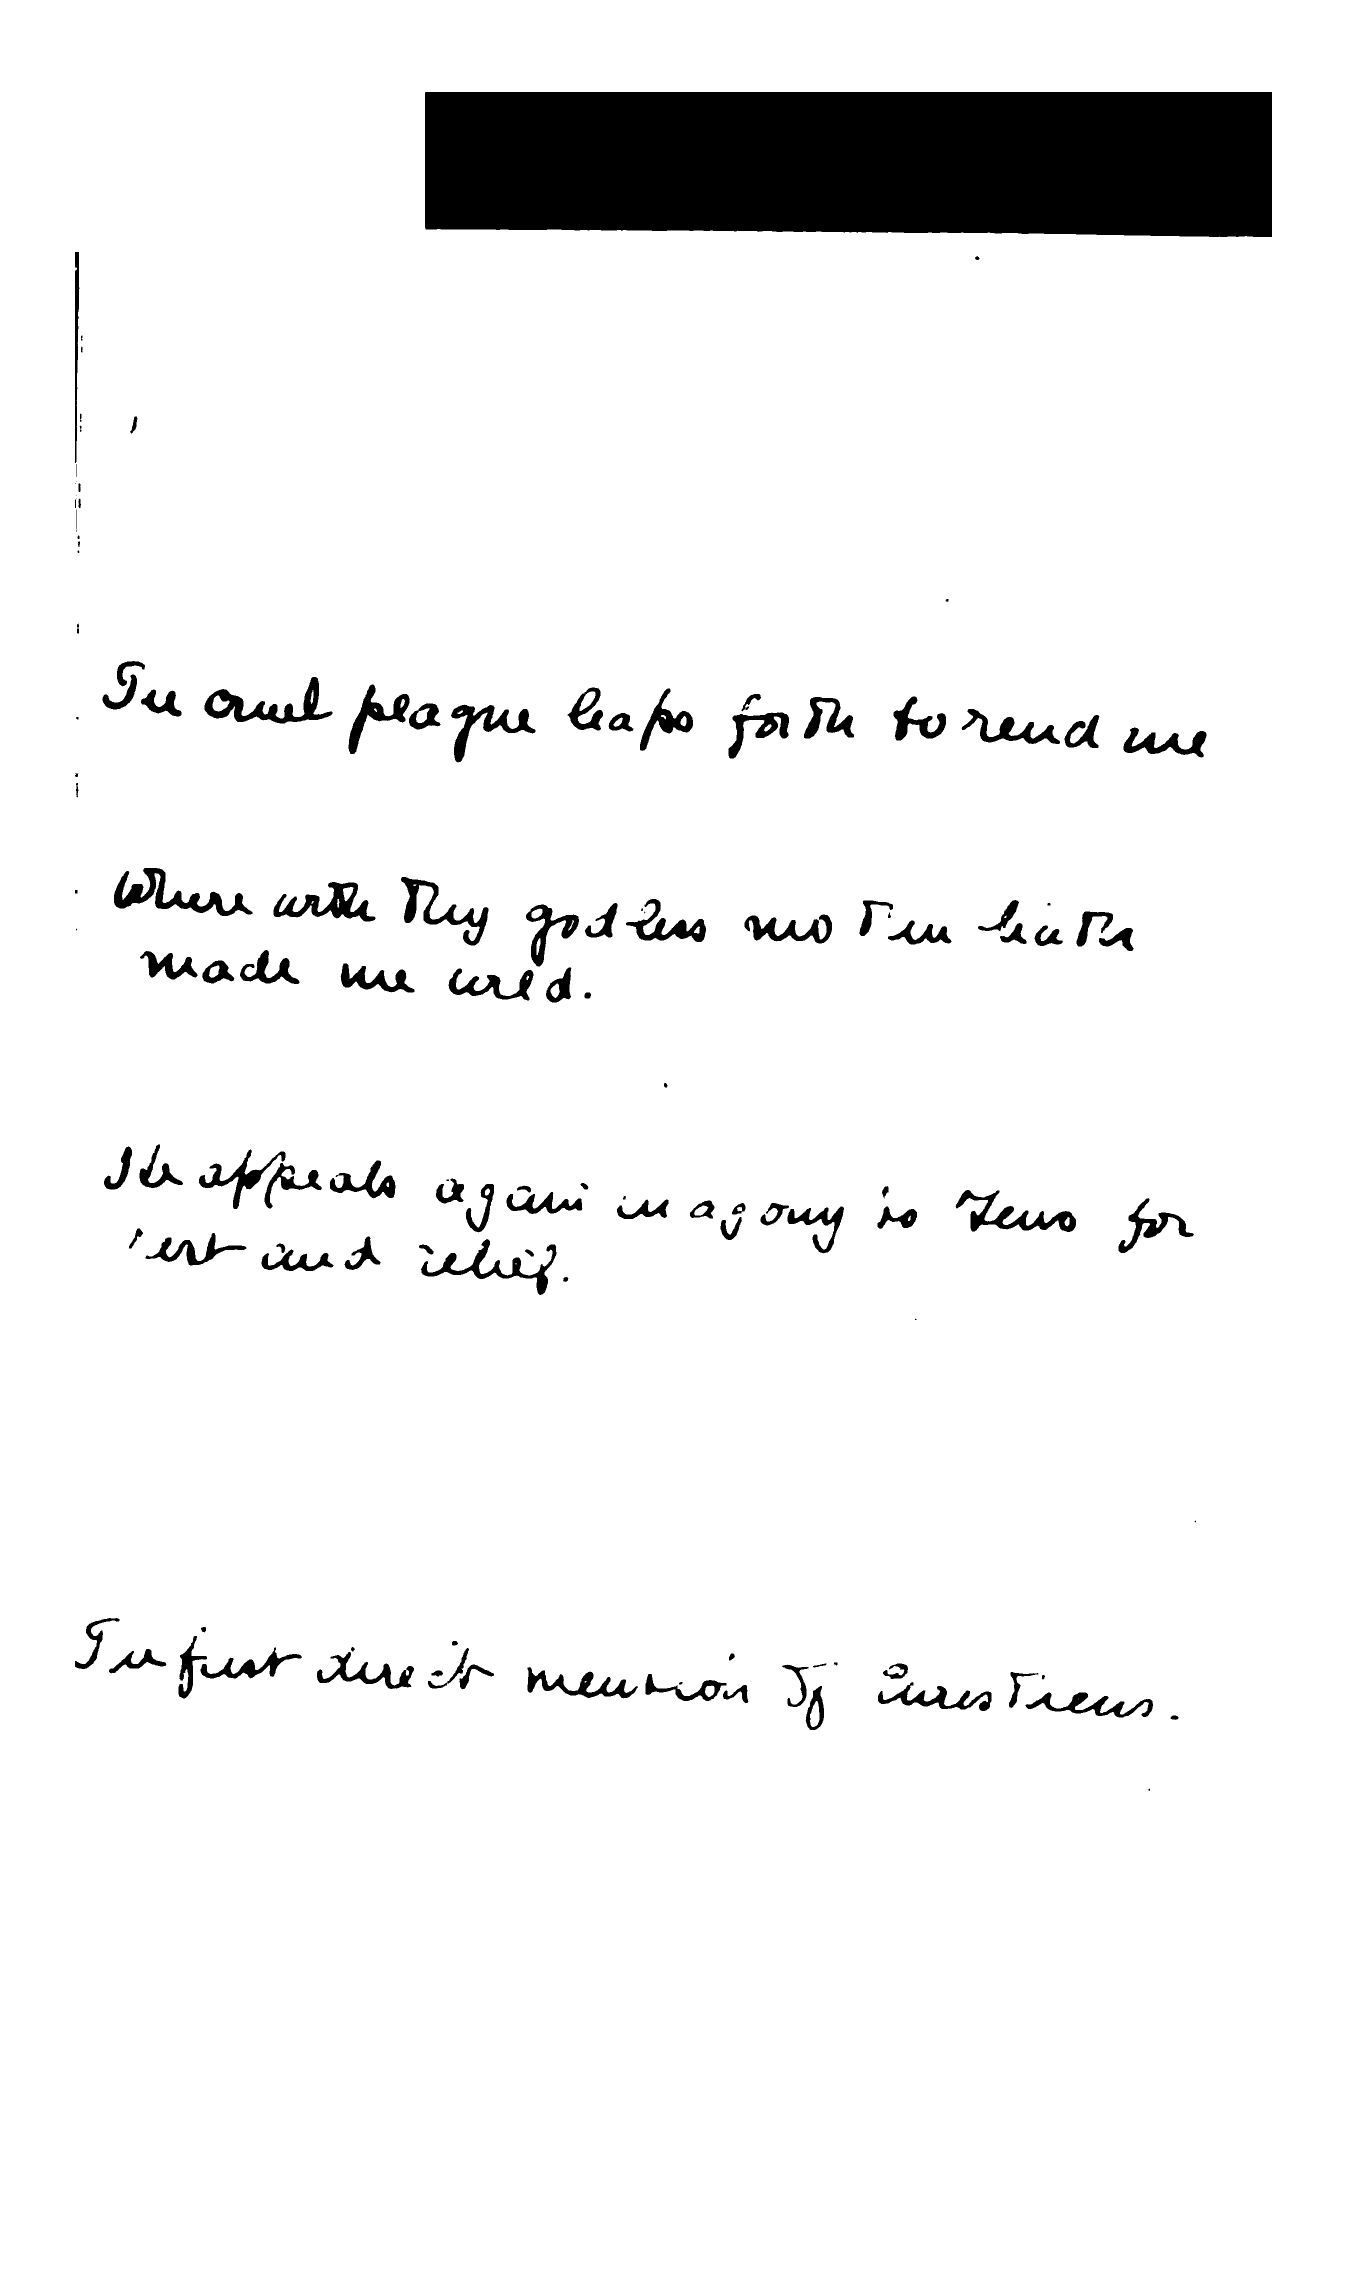 The cruel plague leaps forth to rend me
Wherewith thy godless mother hath
made me wild.
He appeals again in agony to Zeus for
rest and relief.
The first direct mention of Eurystheus.